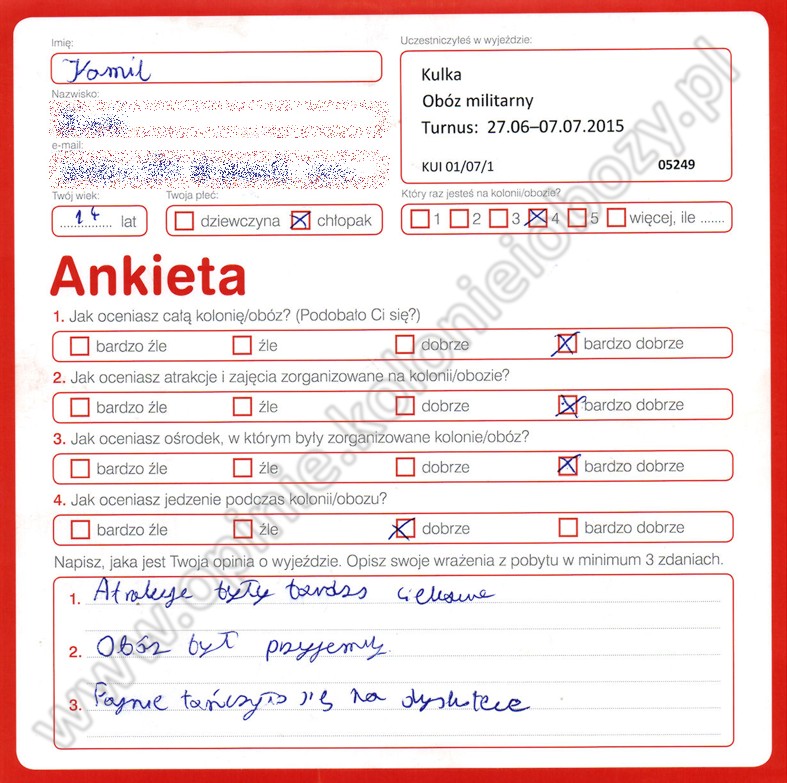 Imię:
Kamil
Nazwisko:
e-mail:
Twój wiek:
14 lat
Twoja płeć:
dziewczyna chłopak
Uczestniczyłeś w wyjeździe:
Kulka
Obóz militarny
Turnus: 27.06–07.07.2015
KUI 01/07/1 05249
Który raz jesteś na kolonii/obozie?
1 2 3 4 5 więcej, ile .......
Ankieta
1. Jak oceniasz całą kolonię/obóz? (Podobało Ci się?)
bardzo źle źle dobrze bardzo dobrze
2. Jak oceniasz atrakcje i zajęcia zorganizowane na kolonii/obozie?
bardzo źle źle dobrze bardzo dobrze
3. Jak oceniasz ośrodek, w którym były zorganizowane kolonie/obóz?
bardzo źle źle dobrze bardzo dobrze
4. Jak oceniasz jedzenie podczas kolonii/obozu?
bardzo źle źle dobrze bardzo dobrze
Napisz, jaka jest Twoja opinia o wyjeździe. Opisz swoje wrażenia z pobytu w minimum 3 zdaniach.
1. Atrakcje były bardzo ciekawe
2. Obóz był przyjemny
3. Fajnie tańczyło się na dyskotece
www.opinie.kolonieiobozy.pl